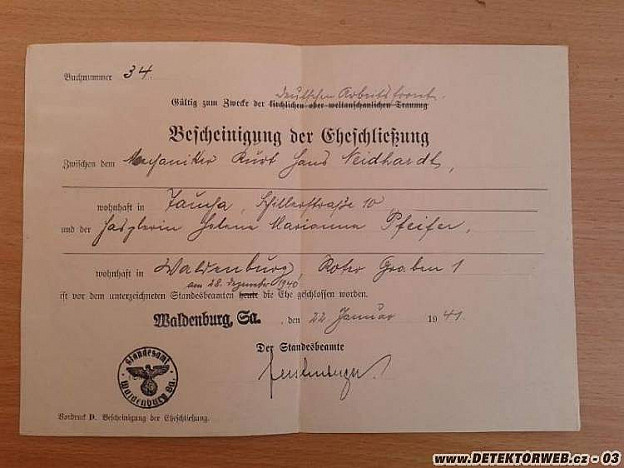 Buchnummer 34
deutschen Arbeitsfront.
Gültig zum Zwecke der kirchlichen oder weltanschaulichen Trauung
Bescheinigung der Eheschließung
Zwischen dem Mechaniker Kurt Hans Neidhardt,
wohnhaft in Taucha, Schillerstraße 10
und der Helene Marianne Pfeifer,
wohnhaft in Waldenburg, Roter Graben 1
am 28. Dezember 1940
ist vor dem unterzeichneten Standesbeamten heute die Ehe geschlossen worden.
Waldenburg, Sa. , den 22. Januar 1941.
Der Standesbeamte
Standesamt
Waldenburg Sa.
Vordruck D. Bescheinigung der Eheschließung.
www.DETEKTORWEB.cz - 03